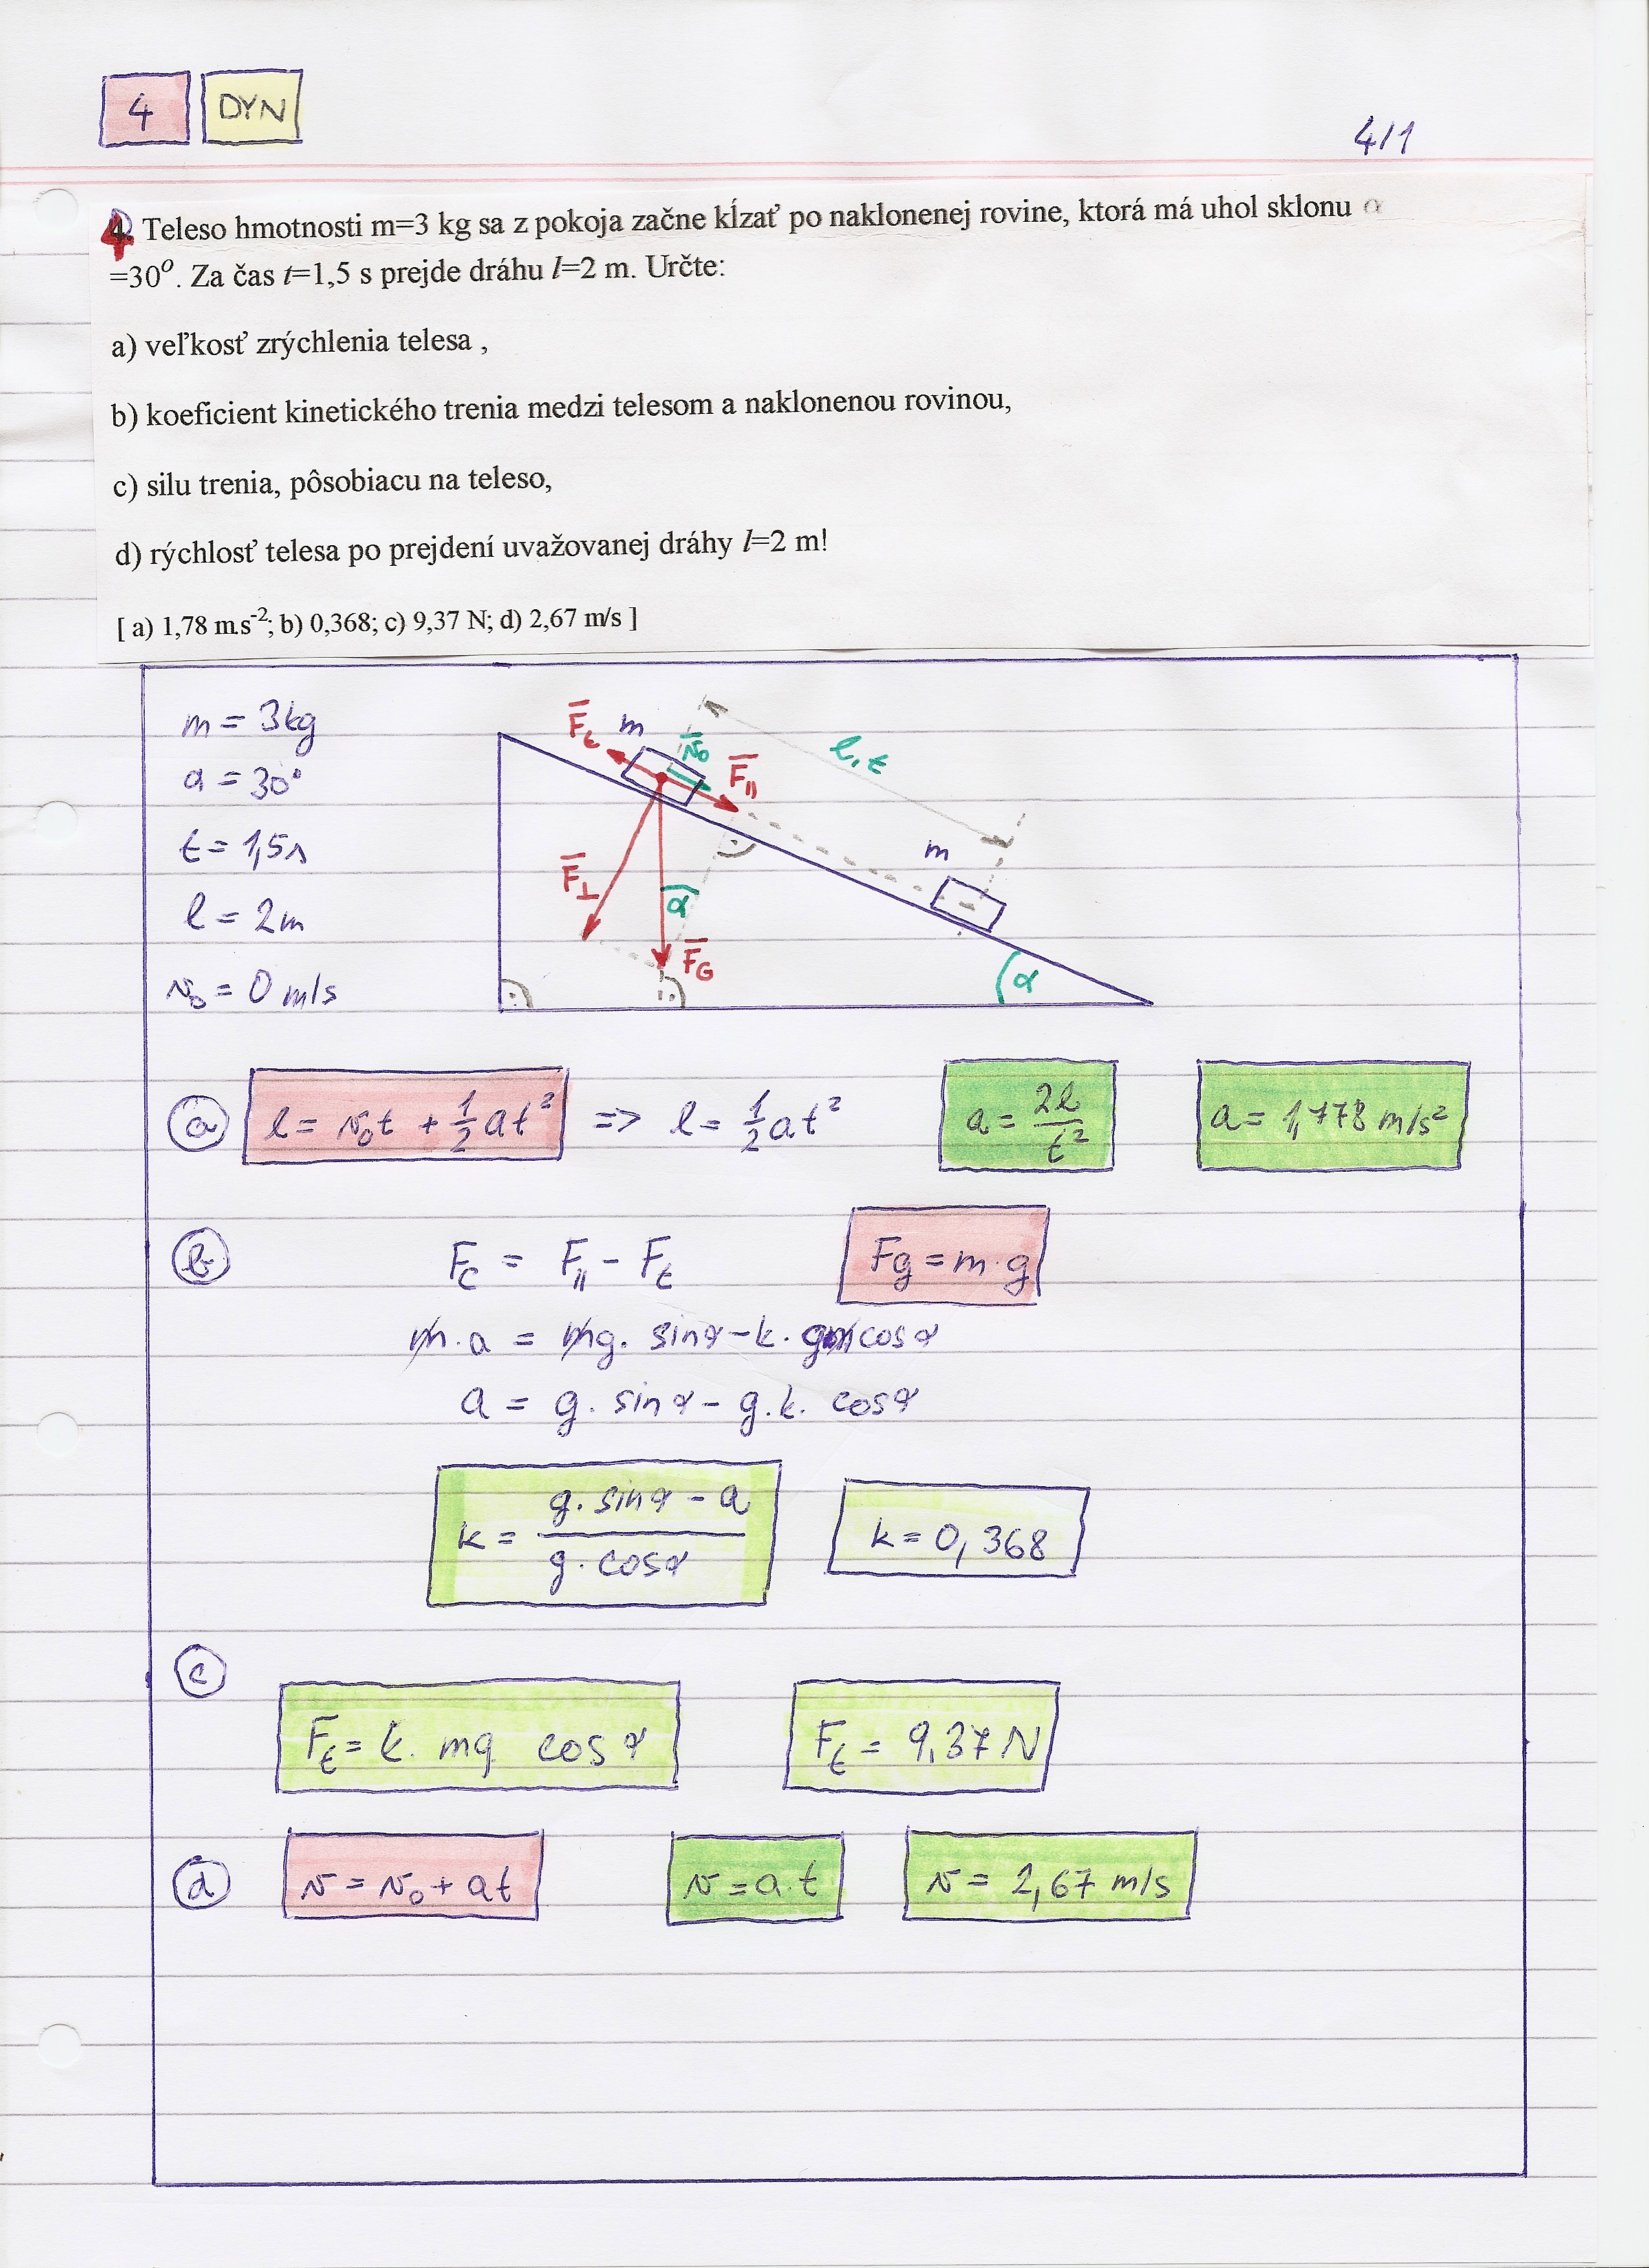 4 DYN
4/1
4. Teleso hmotnosti m=3 kg sa z pokoja začne kĺzať po naklonenej rovine, ktorá má uhol sklonu α
=30°. Za čas t=1,5 s prejde dráhu l=2 m. Určte:
a) veľkosť zrýchlenia telesa ,
b) koeficient kinetického trenia medzi telesom a naklonenou rovinou,
c) silu trenia, pôsobiacu na teleso,
d) rýchlosť telesa po prejdení uvažovanej dráhy l=2 m!
[ a) 1,78 m.s⁻²; b) 0,368; c) 9,37 N; d) 2,67 m/s ]
m = 3kg
α = 30°
t = 1,5s
l = 2m
v₀ = 0 m/s
F̅t m v̅₀ F̅∥ l, t
m
F̅⊥ α
F̅G
α
a l = v₀t + ½at² => l = ½at² a = 2l/t² a = 1,778 m/s²
b Fc = F∥ - Ft Fg = m·g
m·a = mg. sinα - k. gm cosα
a = g. sinα - g.k. cosα
k = (g. sinα - a)/(g. cosα) k = 0,368
c
Ft = k. mg cosα Ft = 9,37N
d v = v₀ + at v = a.t v = 2,67 m/s